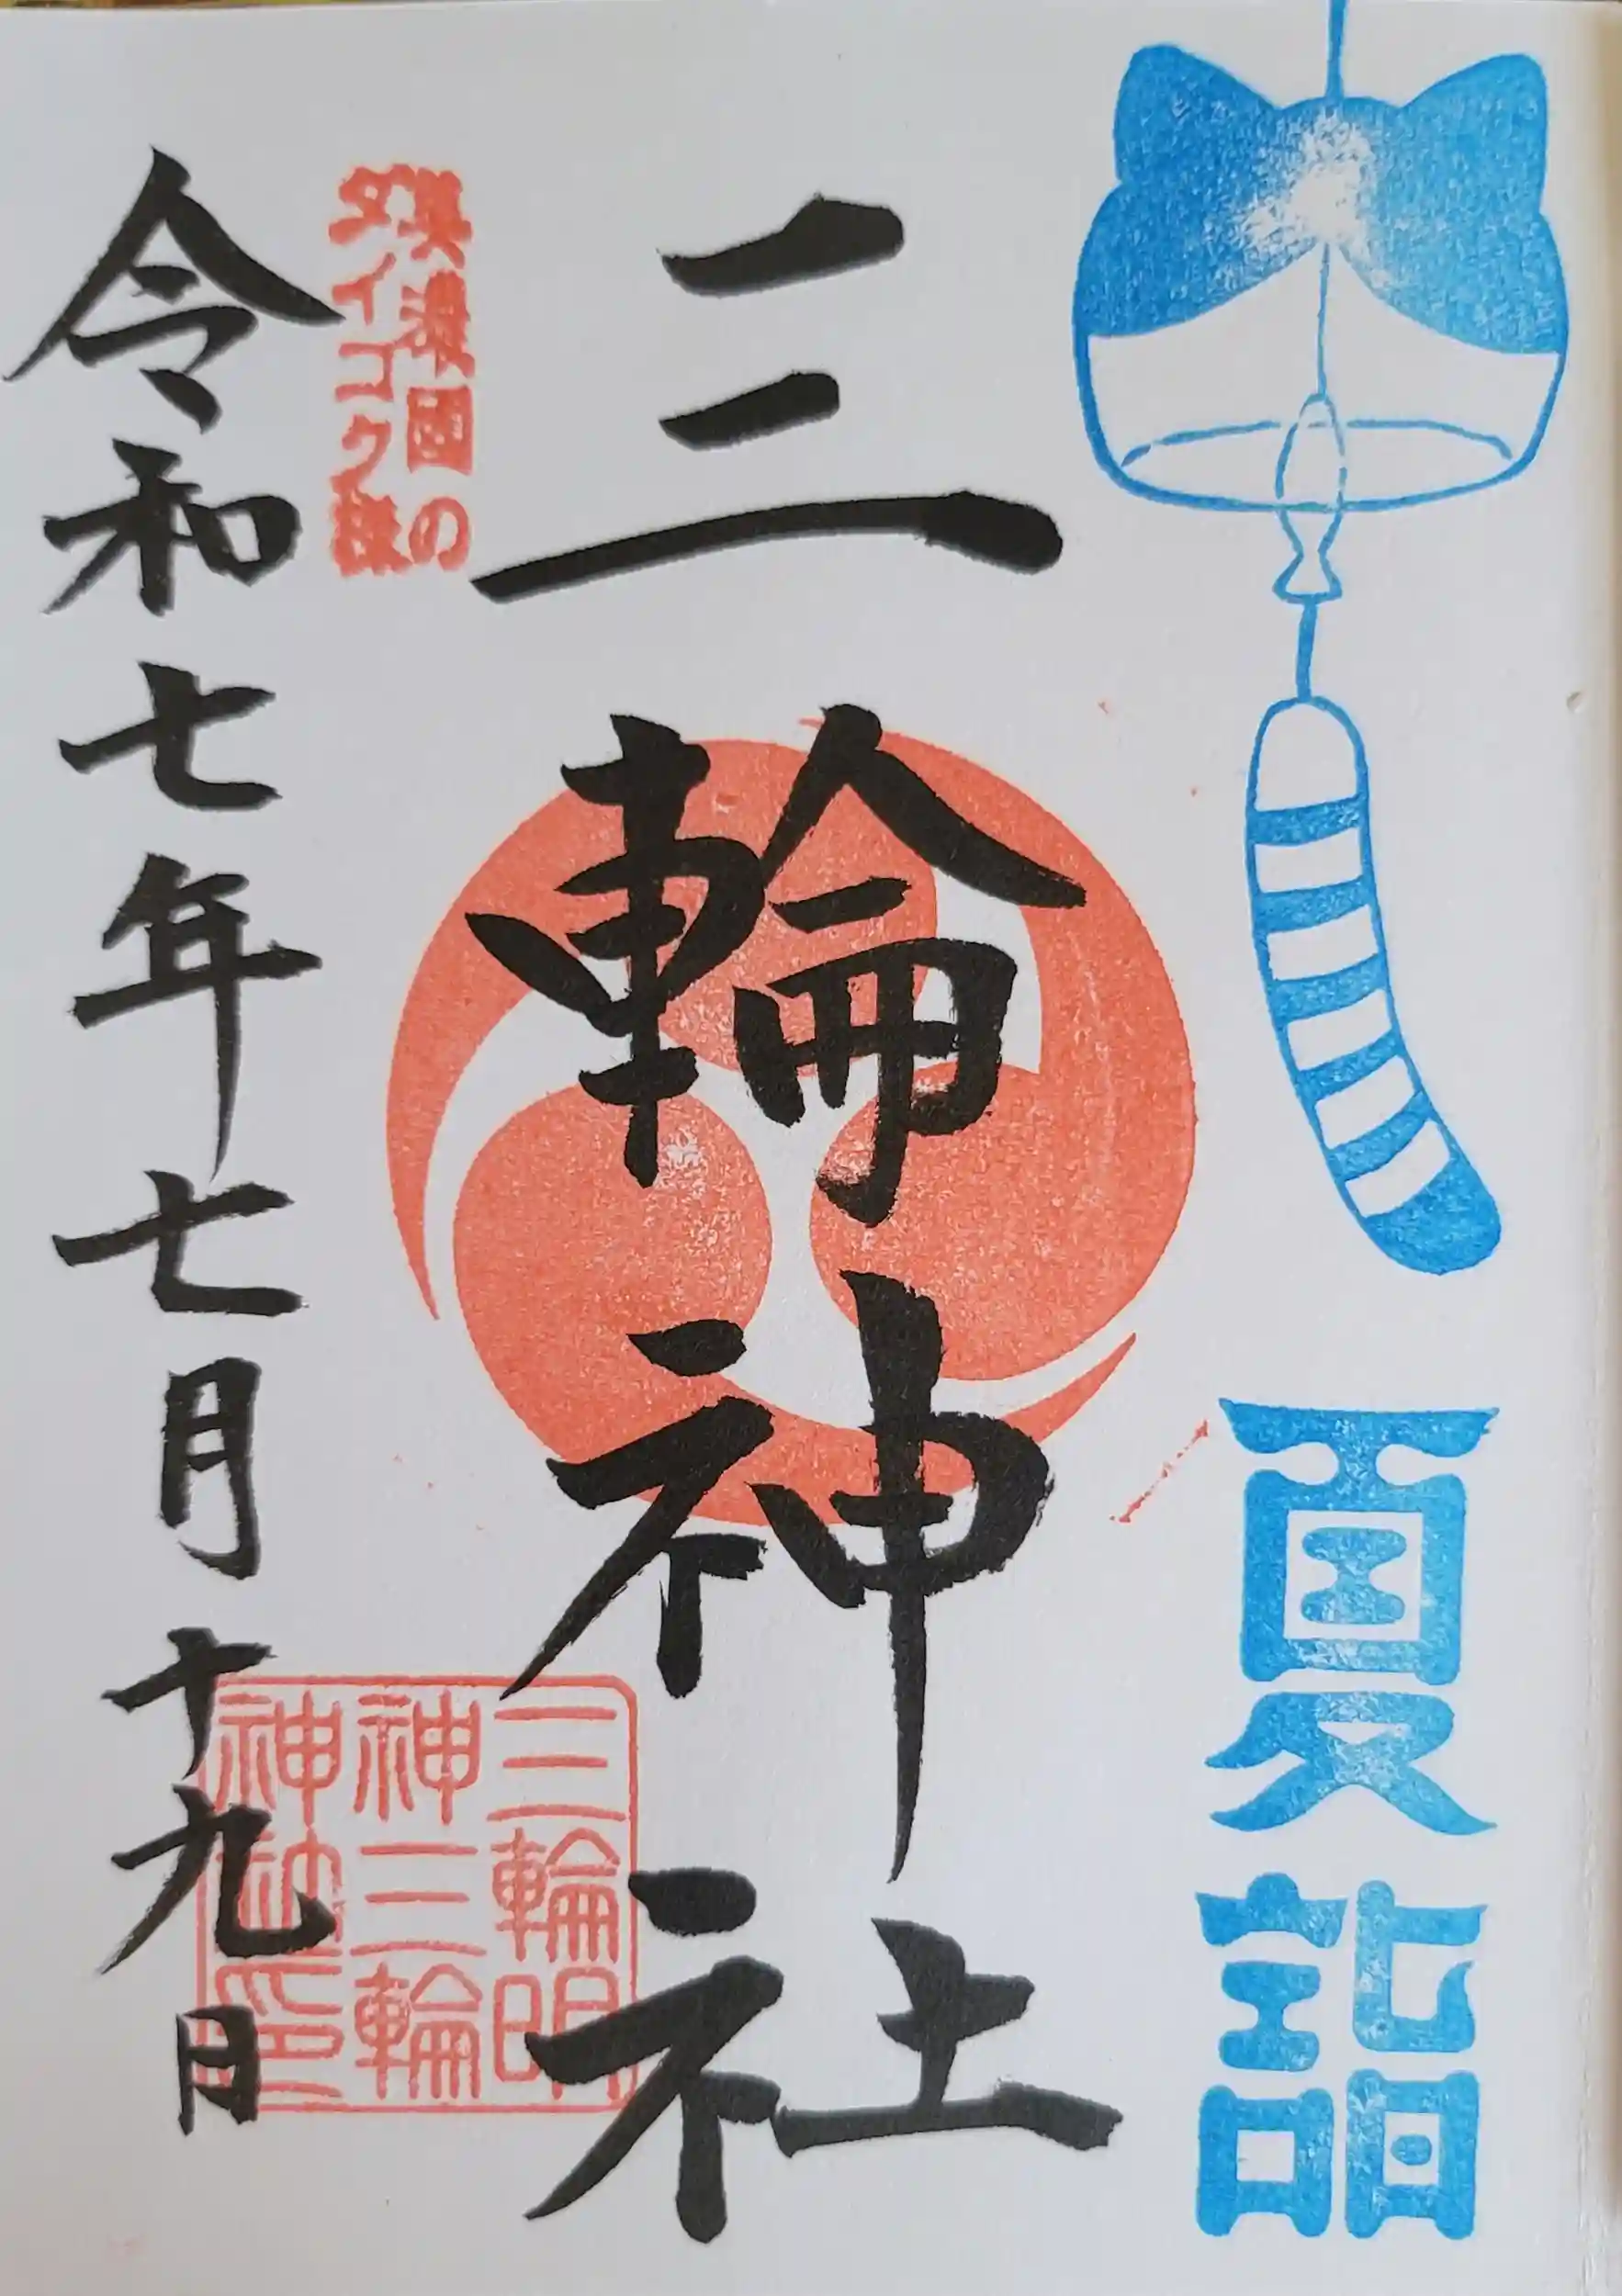 夏詣
三輪神社
美濃國の
ダイコク様
令和七年七月十九日
三輪明
神三輪
神社印